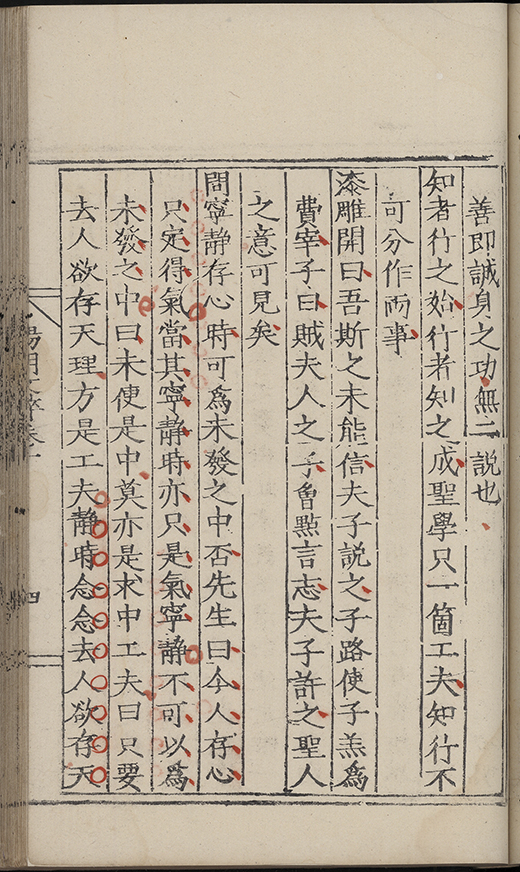 善即誠身之功無二說也
知者行之始行者知之成聖學只一箇工夫知行不
可分作兩事
漆雕開曰吾斯之未能信夫子說之子路使子羔爲
費宰子曰賊夫人之子曾點言志夫子許之聖人
之意可見矣
問寧静存心時可爲未發之中否先生曰今人存心
只定得氣當其寧静時亦只是氣寧静不可以爲
未發之中曰未便是中莫亦是求中工夫曰只要
去人欲存天理方是工夫静時念念去人欲存天
四